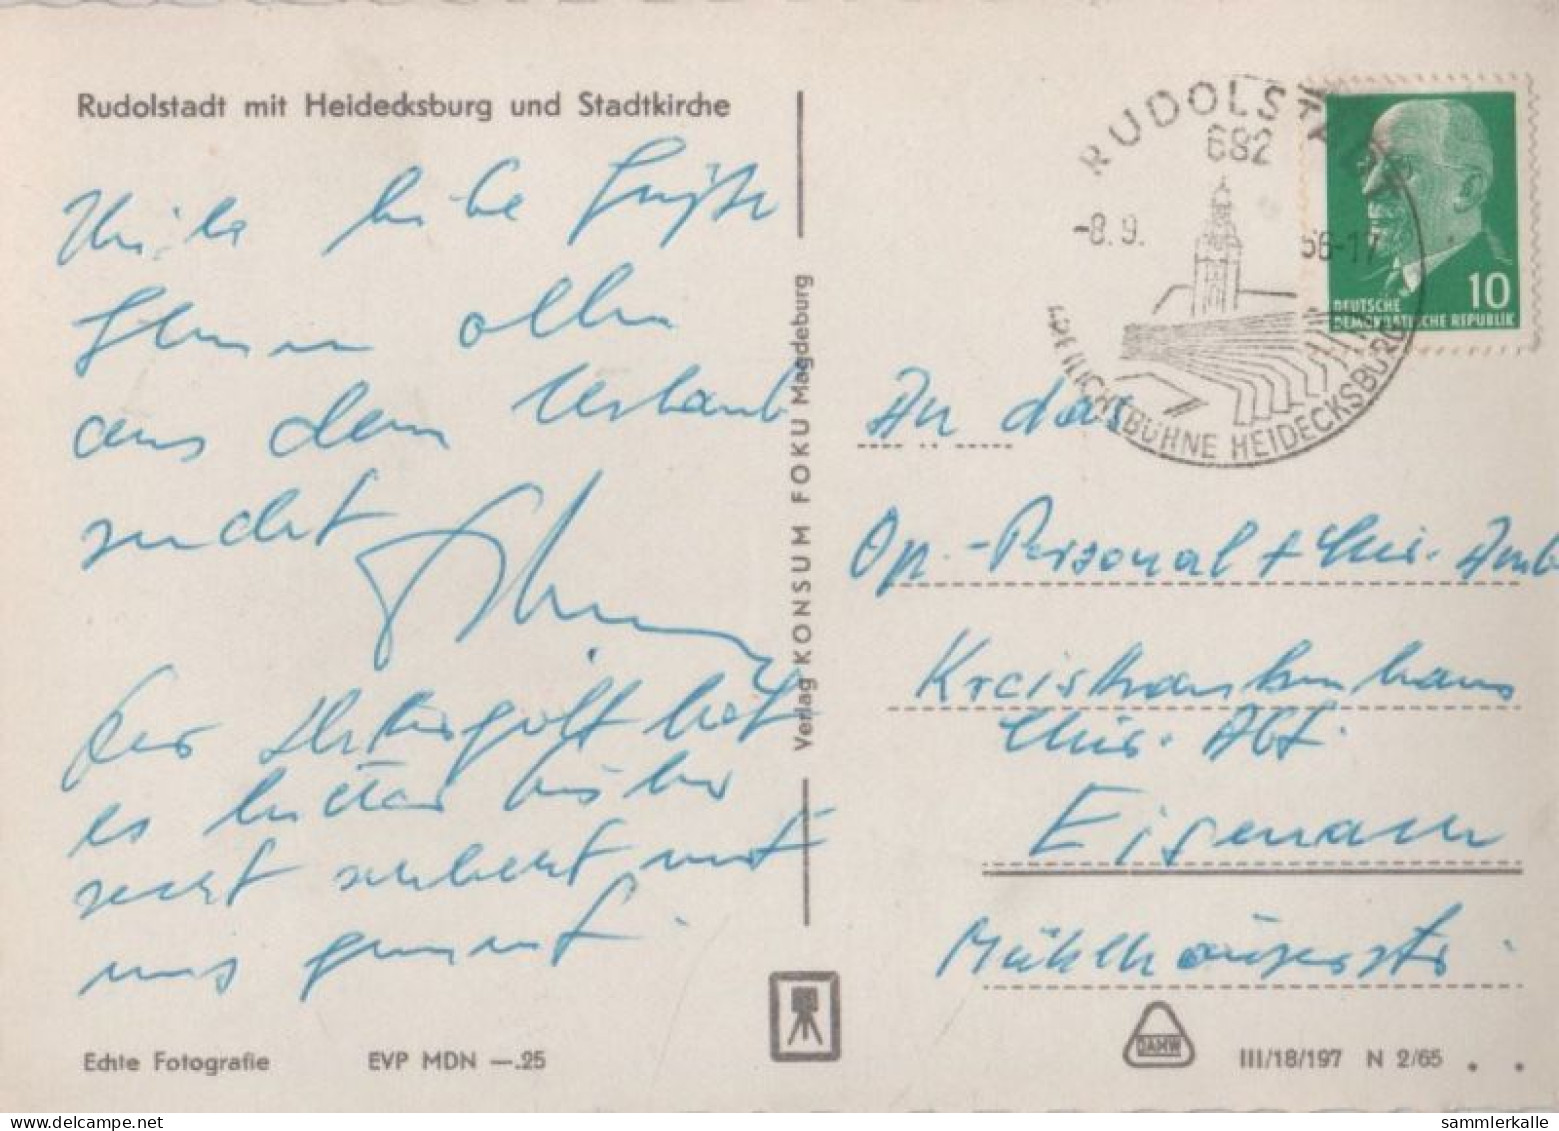 Rudolstadt mit Heidecksburg und Stadtkirche
Viele liebe Grüße
Ihnen allen
aus dem Urlaub
sendet
Der Wettergott hat
es leider bisher
recht schlecht mit
uns gemeint.
Echte Fotografie EVP MDN —.25
Verlag KONSUM FOKU Magdeburg
RUDOLSTADT
682
-8.9. 66-17
FREILICHTBÜHNE HEIDECKSBURG
10
DEUTSCHE
DEMOKRATISCHE REPUBLIK
An das
Op.-Personal + Chir. Amb
Kreiskrankenhaus
Chir. Abt.
Eisenach
Mühlhäuserstr.
DAMW
III/18/197 N 2/65
sammlerkalle